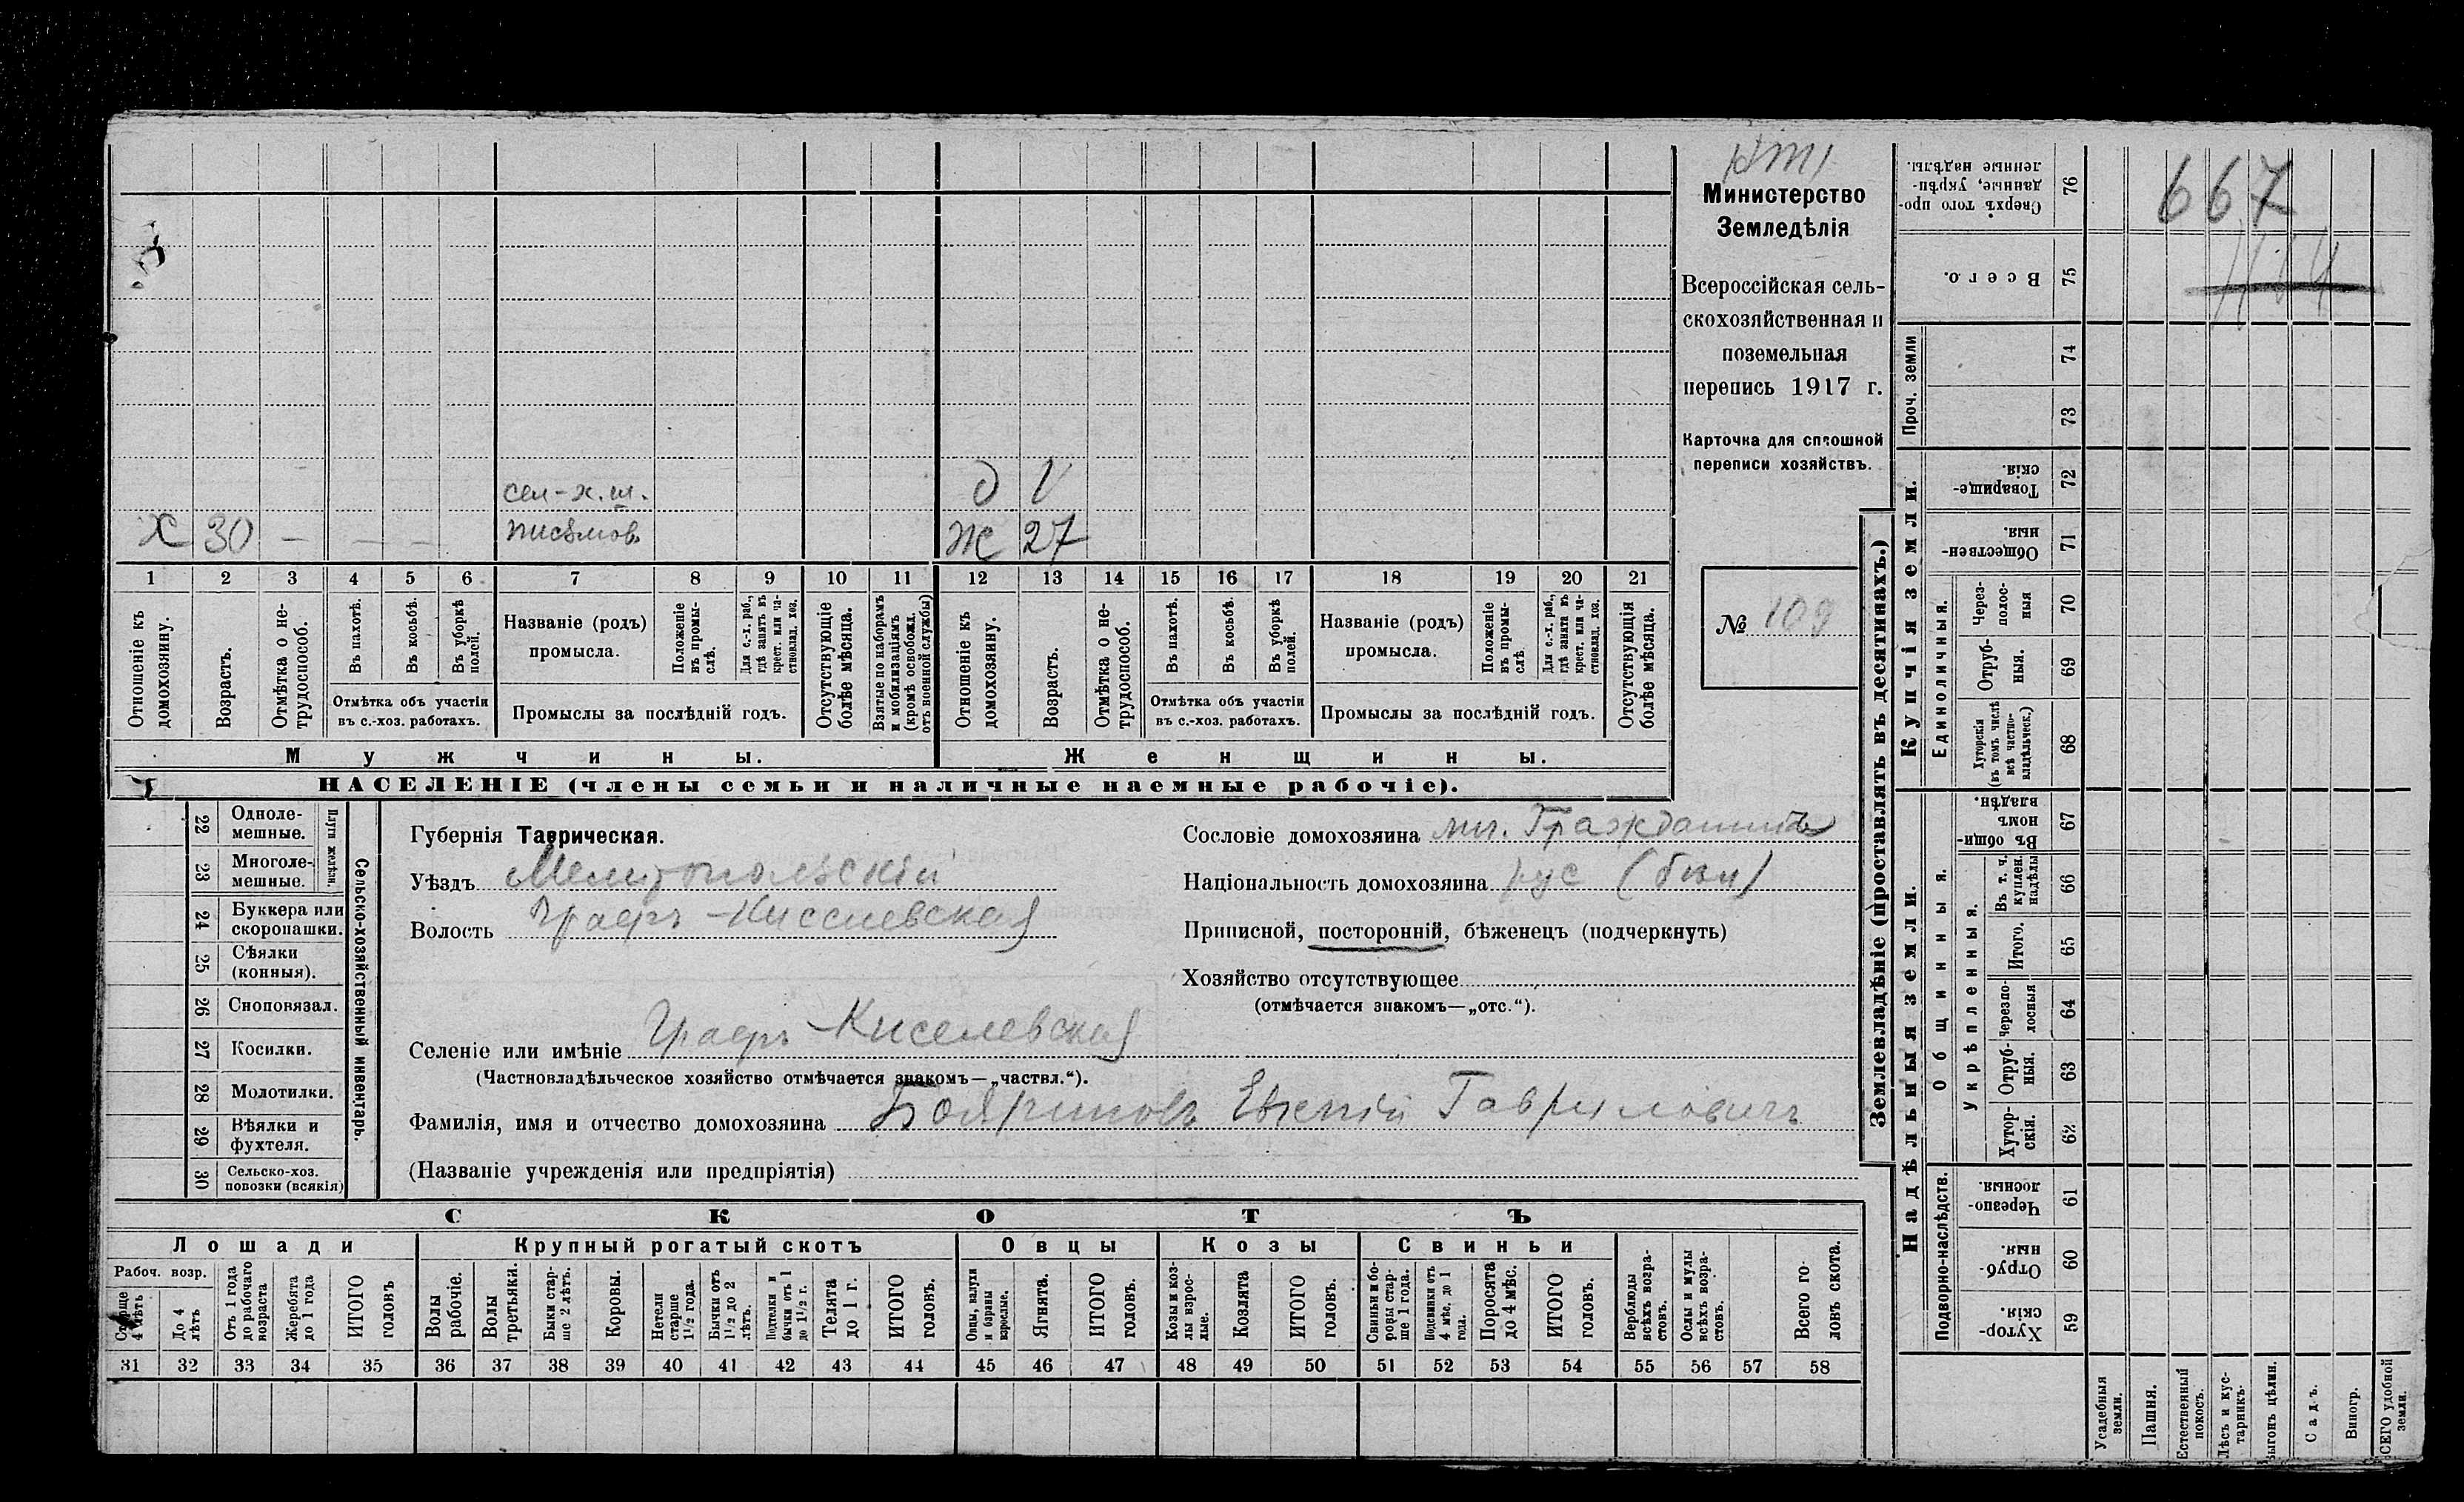 667
Министерство
Земледѣлія
Всероссійская сель-
скохозяйственная и
поземельная
перепись 1917 г.
Карточка для сплошной
переписи хозяйствъ.
№ 109
сел-х. ш.
Х 30 — — — — письмов.
д 1
ж 27
1 2 3 4 5 6 7 8 9 10 11 12 13 14 15 16 17 18 19 20 21
Отношеніе къ домохозяину.
Возрастъ.
Отмѣтка о не-трудоспособ.
Въ пахотѣ.
Въ косьбѣ.
Въ уборкѣ полей.
Отмѣтка объ участіи въ с.-хоз. работахъ.
Названіе (родъ) промысла.
Положеніе въ промы-слѣ.
Для с.-х. раб., гдѣ занятъ въ крест. или ча-стновлад. хоз.
Промыслы за послѣдній годъ.
Отсутствующіе болѣе мѣсяца.
Взятые по наборамъ и мобилизаціямъ (кромѣ освобожд. отъ военной службы)
Отношеніе къ домохозяину.
Возрастъ.
Отмѣтка о не-трудоспособ.
Въ пахотѣ.
Въ косьбѣ.
Въ уборкѣ полей.
Отмѣтка объ участіи въ с.-хоз. работахъ.
Названіе (родъ) промысла.
Положеніе въ промы-слѣ.
Для с.-х. раб., гдѣ занята въ крест. или ча-стновлад. хоз.
Промыслы за послѣдній годъ.
Отсутствующія болѣе мѣсяца.
Мужчины.
Женщины.
НАСЕЛЕНІЕ (члены семьи и наличные наемные рабочіе).
22 Одноле-мешные.
23 Многоле-мешные.
Плуги желѣзн.
24 Буккера или скоропашки.
25 Сѣялки (конныя).
26 Сноповязал.
27 Косилки.
28 Молотилки.
29 Вѣялки и фухтеля.
30 Сельско-хоз. повозки (всякія)
Сельско-хозяйственный инвентарь.
Губернія Таврическая.
Уѣздъ Мелитопольскій
Волость Графъ-Киселевская
Селеніе или имѣніе Графъ-Киселевская
(Частновладѣльческое хозяйство отмѣчается знакомъ—„частвл.“).
Фамилія, имя и отчество домохозяина Бояриновъ Евгеній Гавриловичъ
(Названіе учрежденія или предпріятія)
Сословіе домохозяина Гражданинъ
Національность домохозяина рус
Приписной, посторонній, бѣженецъ (подчеркнуть)
Хозяйство отсутствующее
(отмѣчается знакомъ—„отс.“).
СКОТЪ
Лошади
Крупный рогатый скотъ
Овцы
Козы
Свиньи
Рабоч. возр.
Старше 4 лѣтъ
До 4 лѣтъ
Отъ 1 года до рабочаго возраста
Жеребята до 1 года
ИТОГО головъ
Волы рабочіе.
Волы третьяки.
Быки стар-ше 2 лѣтъ.
Коровы.
Нетели старше 1½ года.
Бычки отъ 1½ до 2 лѣтъ.
Подтелки и бычки отъ 1 до 1½ г.
Телята до 1 г.
ИТОГО головъ.
Овцы, валухи и бараны взрослые.
Ягнята.
ИТОГО головъ.
Козы и коз-лы взрос-лые.
Козлята
ИТОГО головъ.
Свиньи и бо-ровы стар-ше 1 года.
Подсвинки отъ 4 мѣс. до 1 года.
Поросята до 4 мѣс.
ИТОГО головъ.
Верблюды всѣхъ возра-стовъ.
Ослы и мулы всѣхъ возра-стовъ.
Всего го-ловъ скота.
31 32 33 34 35 36 37 38 39 40 41 42 43 44 45 46 47 48 49 50 51 52 53 54 55 56 57 58
Землевладѣніе (проставлять въ десятинахъ.)
Купчія земли.
Надѣльныя земли.
Сверхъ того про-данные, укрѣп-ленные надѣлы. 76
Всего. 75
Проч. земли
74
73
Товарище-скія. 72
Обществен-ныя. 71
Единоличныя.
Через-полос-ныя 70
Отруб-ныя. 69
Хуторскія (въ томъ числѣ всѣ частно-владѣльческ.) 68
Общинныя.
Въ общин-номъ владѣн. 67
Укрѣпленныя.
Въ т. ч. куплен. надѣлы 66
Итого. 65
Черезпо-лосныя 64
Отруб-ныя. 63
Хутор-скія. 62
Подворно-наслѣдств.
Черезпо-лосныя. 61
Отруб-ныя. 60
Хутор-скія. 59
Усадебныя земли.
Пашня.
Естественный покосъ.
Лѣсъ и кус-тарникъ.
Выгонъ цѣлин.
Садъ.
Виногр.
ВСЕГО удобной земли.